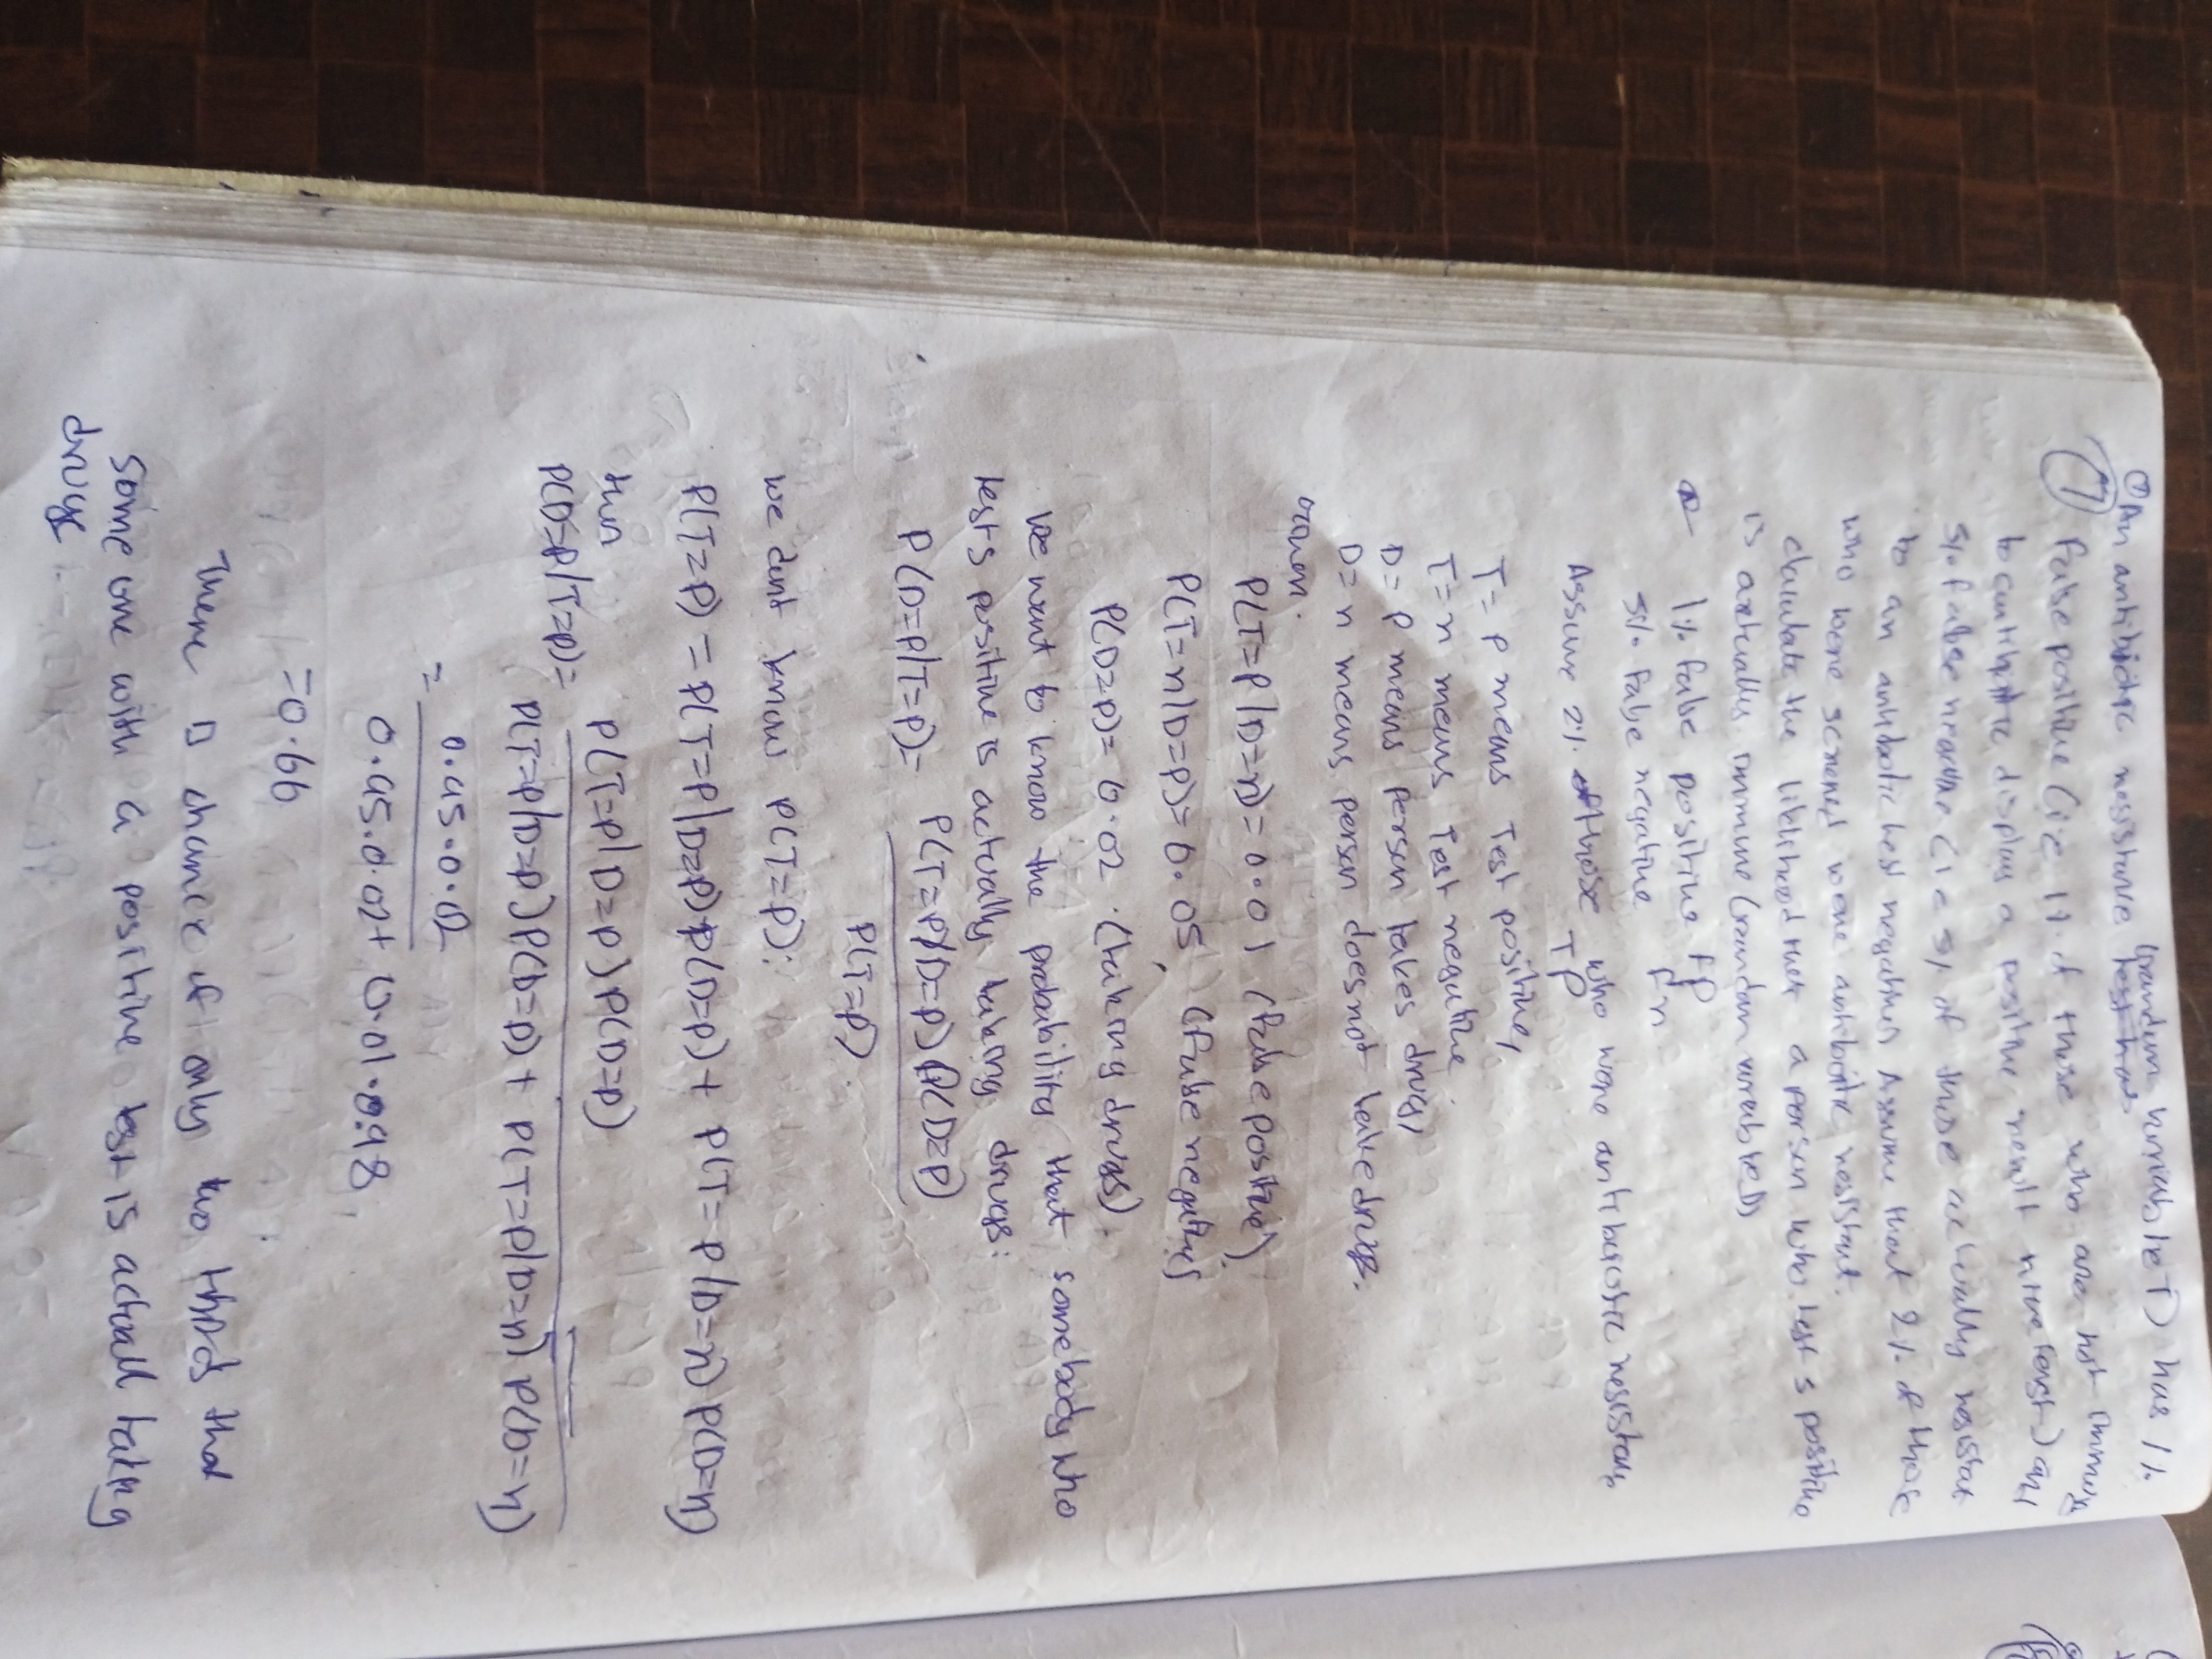 ① An antibiotic resistance test has (random variable T) has 1%
false positive (i.e. 1% of those who are not immune
to antibiotic display a positive result in the test) and
5% false negative (i.e 5% of those actually resistant
to an antibiotic test negative. Assume that 2% of those
who were screened were antibiotic resistant.
calculate the likelihood that a person who tests positive
is actually immune (random variable D)
1% false positive fp
5% false negative fn
Assume 2% of those who were antibiotic resistant
TP
T = p means Test positive,
T = n means Test negative
D = p means person takes drugs,
D = n means person does not take drugs.
P(T=p|D=n) = 0.01 (false positive)
P(T=n|D=p) = 0.05 (false negatives
P(D=p) = 0.02 (taking drugs)
we want to know the probability that somebody who
tests positive is actually taking drugs:
P(D=p|T=p) = P(T=p|D=p) P(D=p)
P(T=p)
we dont know P(T=p):
P(T=p) = P(T=p|D=p) P(D=p) + P(T=p|D=n) P(D=n)
P(D=p|T=p) = P(T=p|D=p) P(D=p)
P(T=p|D=p) P(D=p) + P(T=p|D=n) P(D=n)
= 0.95.0.02
0.95.0.02 + 0.01.0.98
= 0.66
There is chance of only two thirds that
some one with a positive test is actuall taking
druge